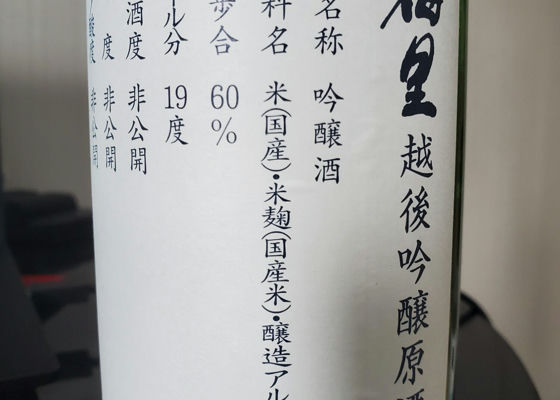 里 越後吟醸原酒
名称 吟醸酒
料名 米(国産)・米麹(国産米)・醸造アル
歩合 60%
ル分 19度
酒度 非公開
度 非公開
酸度 非公開